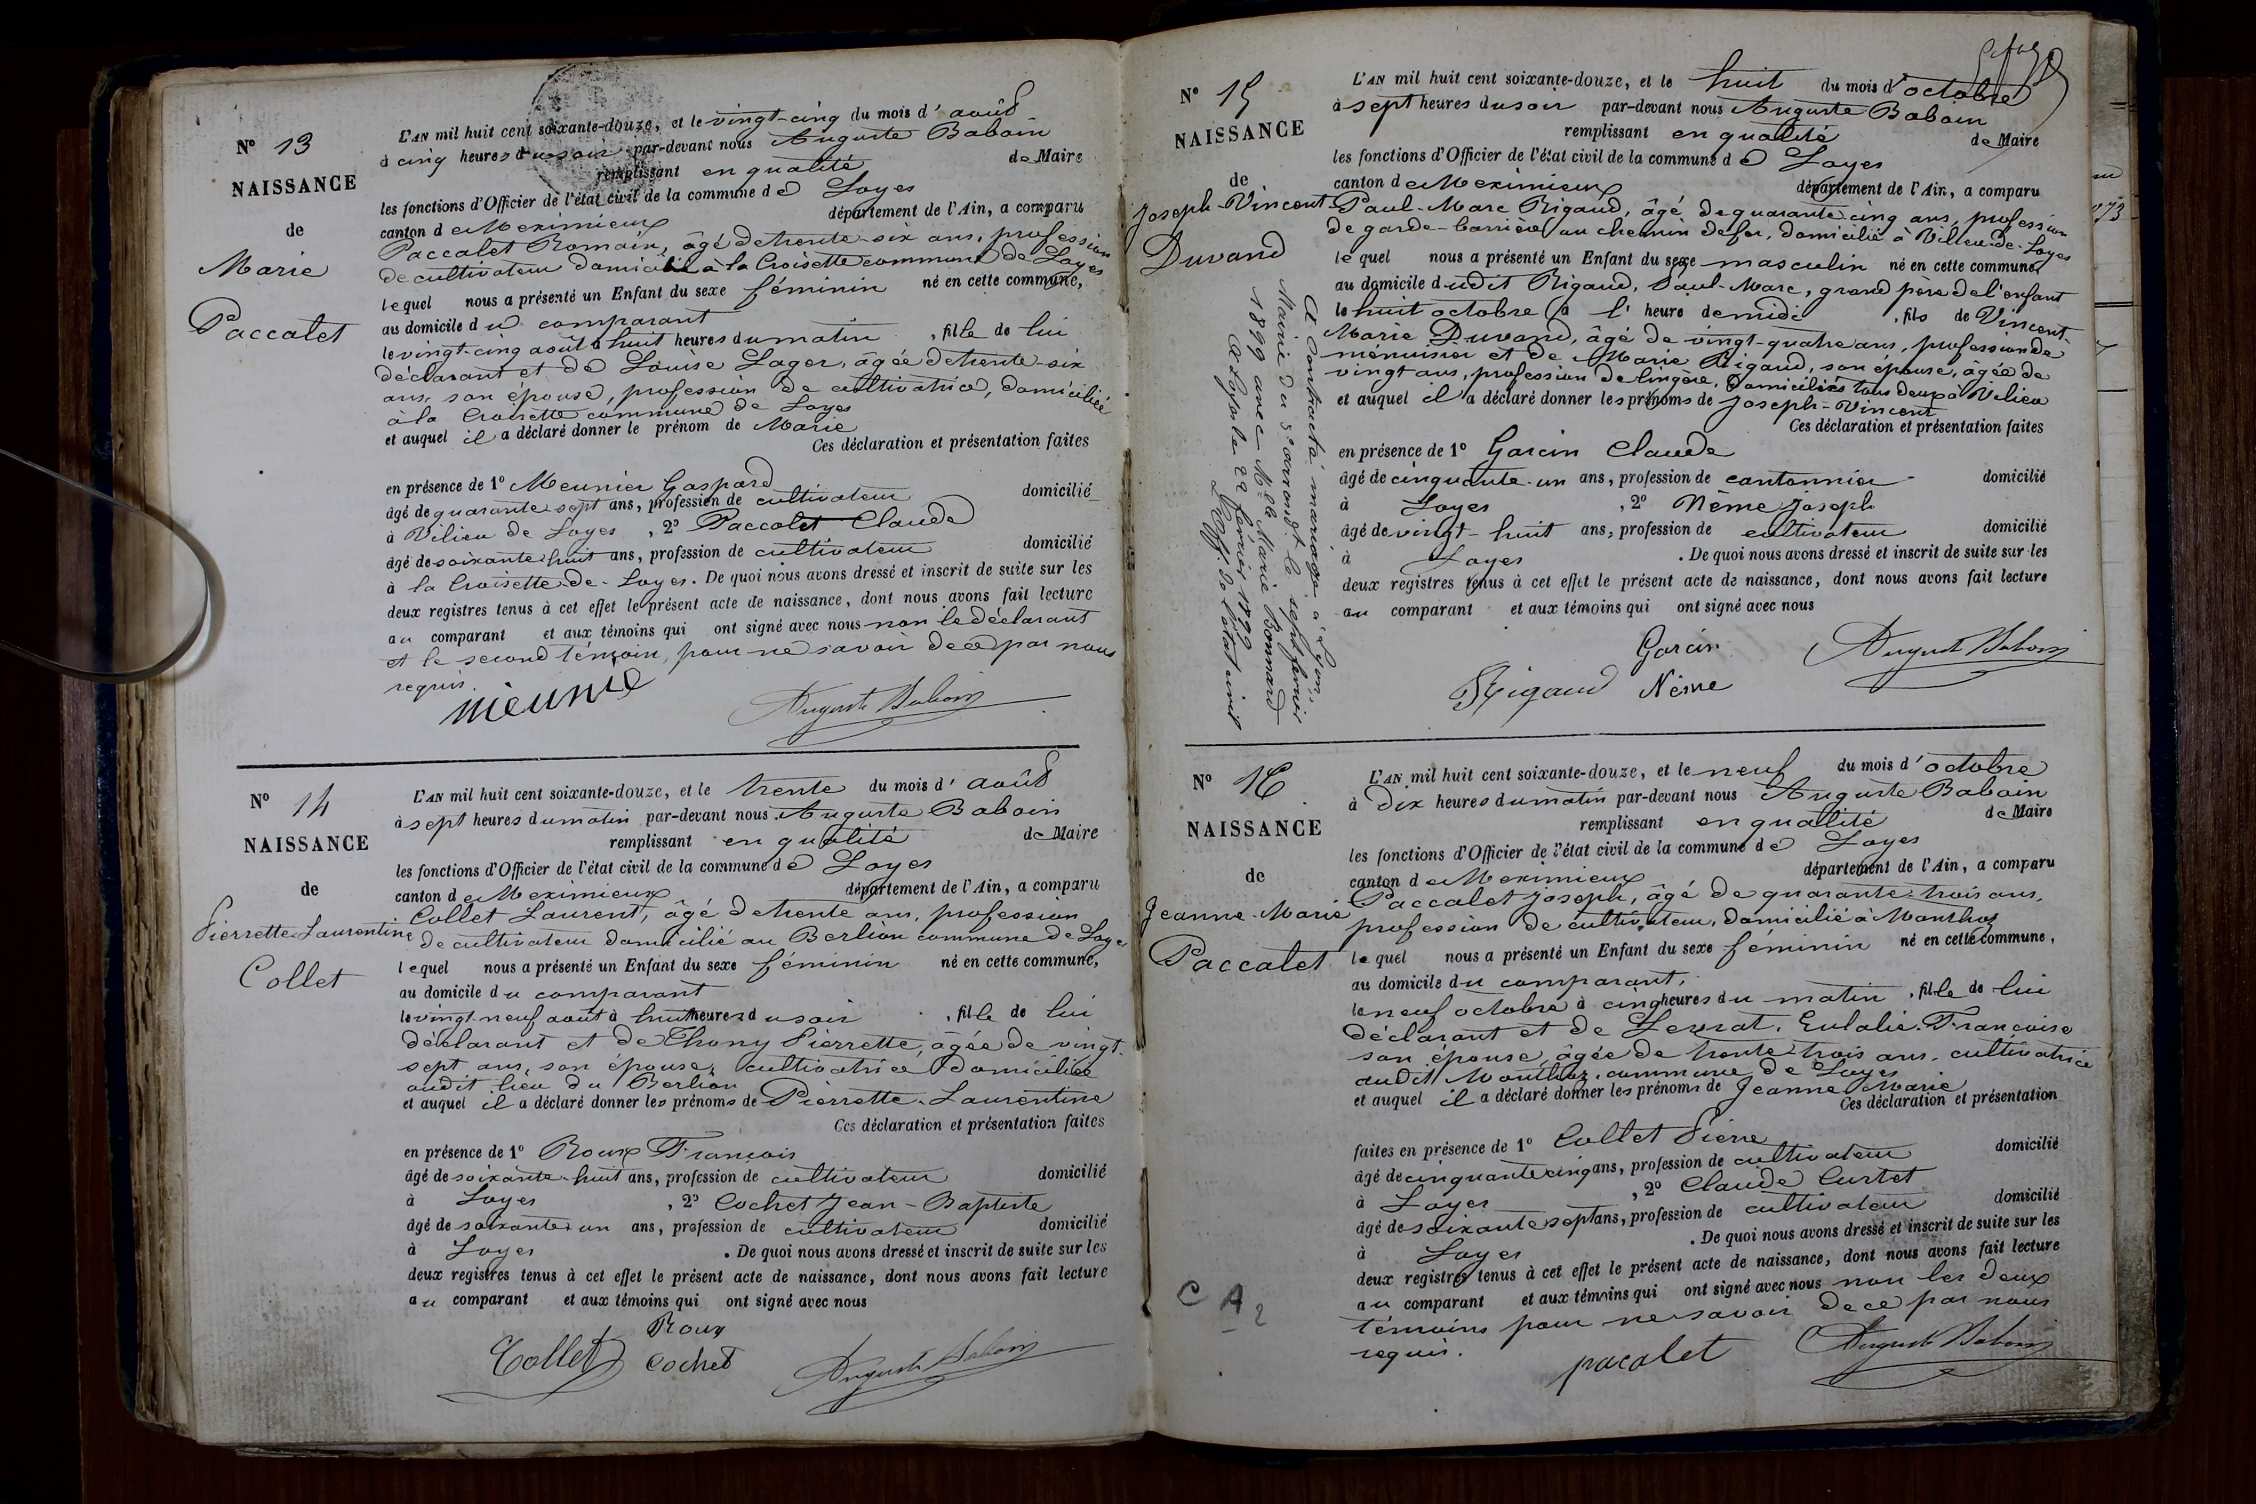 N° 13
NAISSANCE
de
Marie
Paccalet
L'AN mil huit cent soixante-douze, et le vingt-cinq du mois d'août
à cinq heures du soir par-devant nous Auguste Baboin
remplissant en qualité de Maire
les fonctions d'Officier de l'état civil de la commune de Loyes
canton de Meximieux département de l'Ain, a comparu
Paccalet Romain, âgé de trente-six ans, profession
de cultivateur domicilié à la Croisette commune de Loyes
lequel nous a présenté un Enfant du sexe féminin né en cette commune,
au domicile du comparant
le vingt-cinq août à huit heures du matin, fille de lui
déclarant et de Louise Lager, âgée de trente-six
ans, son épouse, profession de cultivatrice, domiciliée
à la Croisette commune de Loyes
et auquel il a déclaré donner le prénom de Marie
Ces déclaration et présentation faites
en présence de 1° Meunier Gaspard
âgé de quarante sept ans, profession de cultivateur domicilié
à Vilieu de Loyes, 2° Paccalet Claude
âgé de soixante huit ans, profession de cultivateur domicilié
à la Croisette-de-Loyes. De quoi nous avons dressé et inscrit de suite sur les
deux registres tenus à cet effet le présent acte de naissance, dont nous avons fait lecture
au comparant et aux témoins qui ont signé avec nous non le déclarant
et le second témoin, pour ne savoir de ce par nous
requis.
Auguste Baboin
N° 14
NAISSANCE
de
Pierrette-Laurentine
Collet
L'AN mil huit cent soixante-douze, et le trente du mois d'août
à sept heures du matin par-devant nous Auguste Baboin
remplissant en qualité de Maire
les fonctions d'Officier de l'état civil de la commune de Loyes
canton de Meximieux département de l'Ain, a comparu
Collet Laurent, âgé de trente ans, profession
de cultivateur domicilié au Berlion commune de Loyes
lequel nous a présenté un Enfant du sexe féminin né en cette commune,
au domicile du comparant
le vingt-neuf août à huit heures du soir, fille de lui
déclarant et de Thony Pierrette, âgée de vingt-
sept ans, son épouse, cultivatrice domiciliée
audit lieu du Berlion
et auquel il a déclaré donner les prénoms de Pierrette-Laurentine
Ces déclaration et présentation faites
en présence de 1° Roux François
âgé de soixante-huit ans, profession de cultivateur domicilié
à Loyes, 2° Cochet Jean-Baptiste
âgé de soixante un ans, profession de cultivateur domicilié
à Loyes. De quoi nous avons dressé et inscrit de suite sur les
deux registres tenus à cet effet le présent acte de naissance, dont nous avons fait lecture
au comparant et aux témoins qui ont signé avec nous
Roux
Collet Cochet Auguste Baboin
N° 15
NAISSANCE
de
Joseph-Vincent
Duvand
A contracté mariage à Lyon,
Mairie du 5e arrondt. le sept février
1899 avec Mlle Marie Bonnard
A Loyes le 22 février 1899
L'AN mil huit cent soixante-douze, et le huit du mois d'octobre
à sept heures du soir par-devant nous Auguste Baboin
remplissant en qualité de Maire
les fonctions d'Officier de l'état civil de la commune de Loyes
canton de Meximieux département de l'Ain, a comparu
Paul-Marc Rigaud, âgé de quarante-cinq ans, profession
de garde-barrière au chemin de fer, domicilié à Vilieu-de-Loyes
lequel nous a présenté un Enfant du sexe masculin né en cette commune,
au domicile dudit Rigaud, Paul-Marc, grand père de l'enfant
le huit octobre à l'heure de midi, fils de Vincent-
Marie Duvand, âgé de vingt-quatre ans, profession de
menuisier et de Marie Rigaud, son épouse, âgée de
vingt ans, profession de lingère, domiciliés tous deux à Vilieu
et auquel il a déclaré donner les prénoms de Joseph-Vincent
Ces déclaration et présentation faites
en présence de 1° Garcin Claude
âgé de cinquante-un ans, profession de cantonnier domicilié
à Loyes, 2° Nême Joseph
âgé de vingt-huit ans, profession de cultivateur domicilié
à Loyes. De quoi nous avons dressé et inscrit de suite sur les
deux registres tenus à cet effet le présent acte de naissance, dont nous avons fait lecture
au comparant et aux témoins qui ont signé avec nous
Garcin Auguste Baboin
Rigaud Nême
N° 16
NAISSANCE
de
Jeanne-Marie
Paccalet
C A 2
L'AN mil huit cent soixante-douze, et le neuf du mois d'octobre
à dix heures du matin par-devant nous Auguste Baboin
remplissant en qualité de Maire
les fonctions d'Officier de l'état civil de la commune de Loyes
canton de Meximieux département de l'Ain, a comparu
Paccalet Joseph, âgé de quarante-trois ans,
profession de cultivateur, domicilié à Monthoz
lequel nous a présenté un Enfant du sexe féminin né en cette commune,
au domicile du comparant,
le neuf octobre à cinq heures du matin, fille de lui
déclarant et de Leyrat, Eulalie-Françoise
son épouse, âgée de trente-trois ans, cultivatrice
audit Monthoz, commune de Loyes
et auquel il a déclaré donner les prénoms de Jeanne Marie
Ces déclaration et présentation
faites en présence de 1° Collet Pierre
âgé de cinquante cinq ans, profession de cultivateur domicilié
à Loyes, 2° Claude Curtet
âgé de soixante sept ans, profession de cultivateur domicilié
à Loyes. De quoi nous avons dressé et inscrit de suite sur les
deux registres tenus à cet effet le présent acte de naissance, dont nous avons fait lecture
au comparant et aux témoins qui ont signé avec nous non les deux
témoins pour ne savoir de ce par nous
requis.
pacalet Auguste Baboin